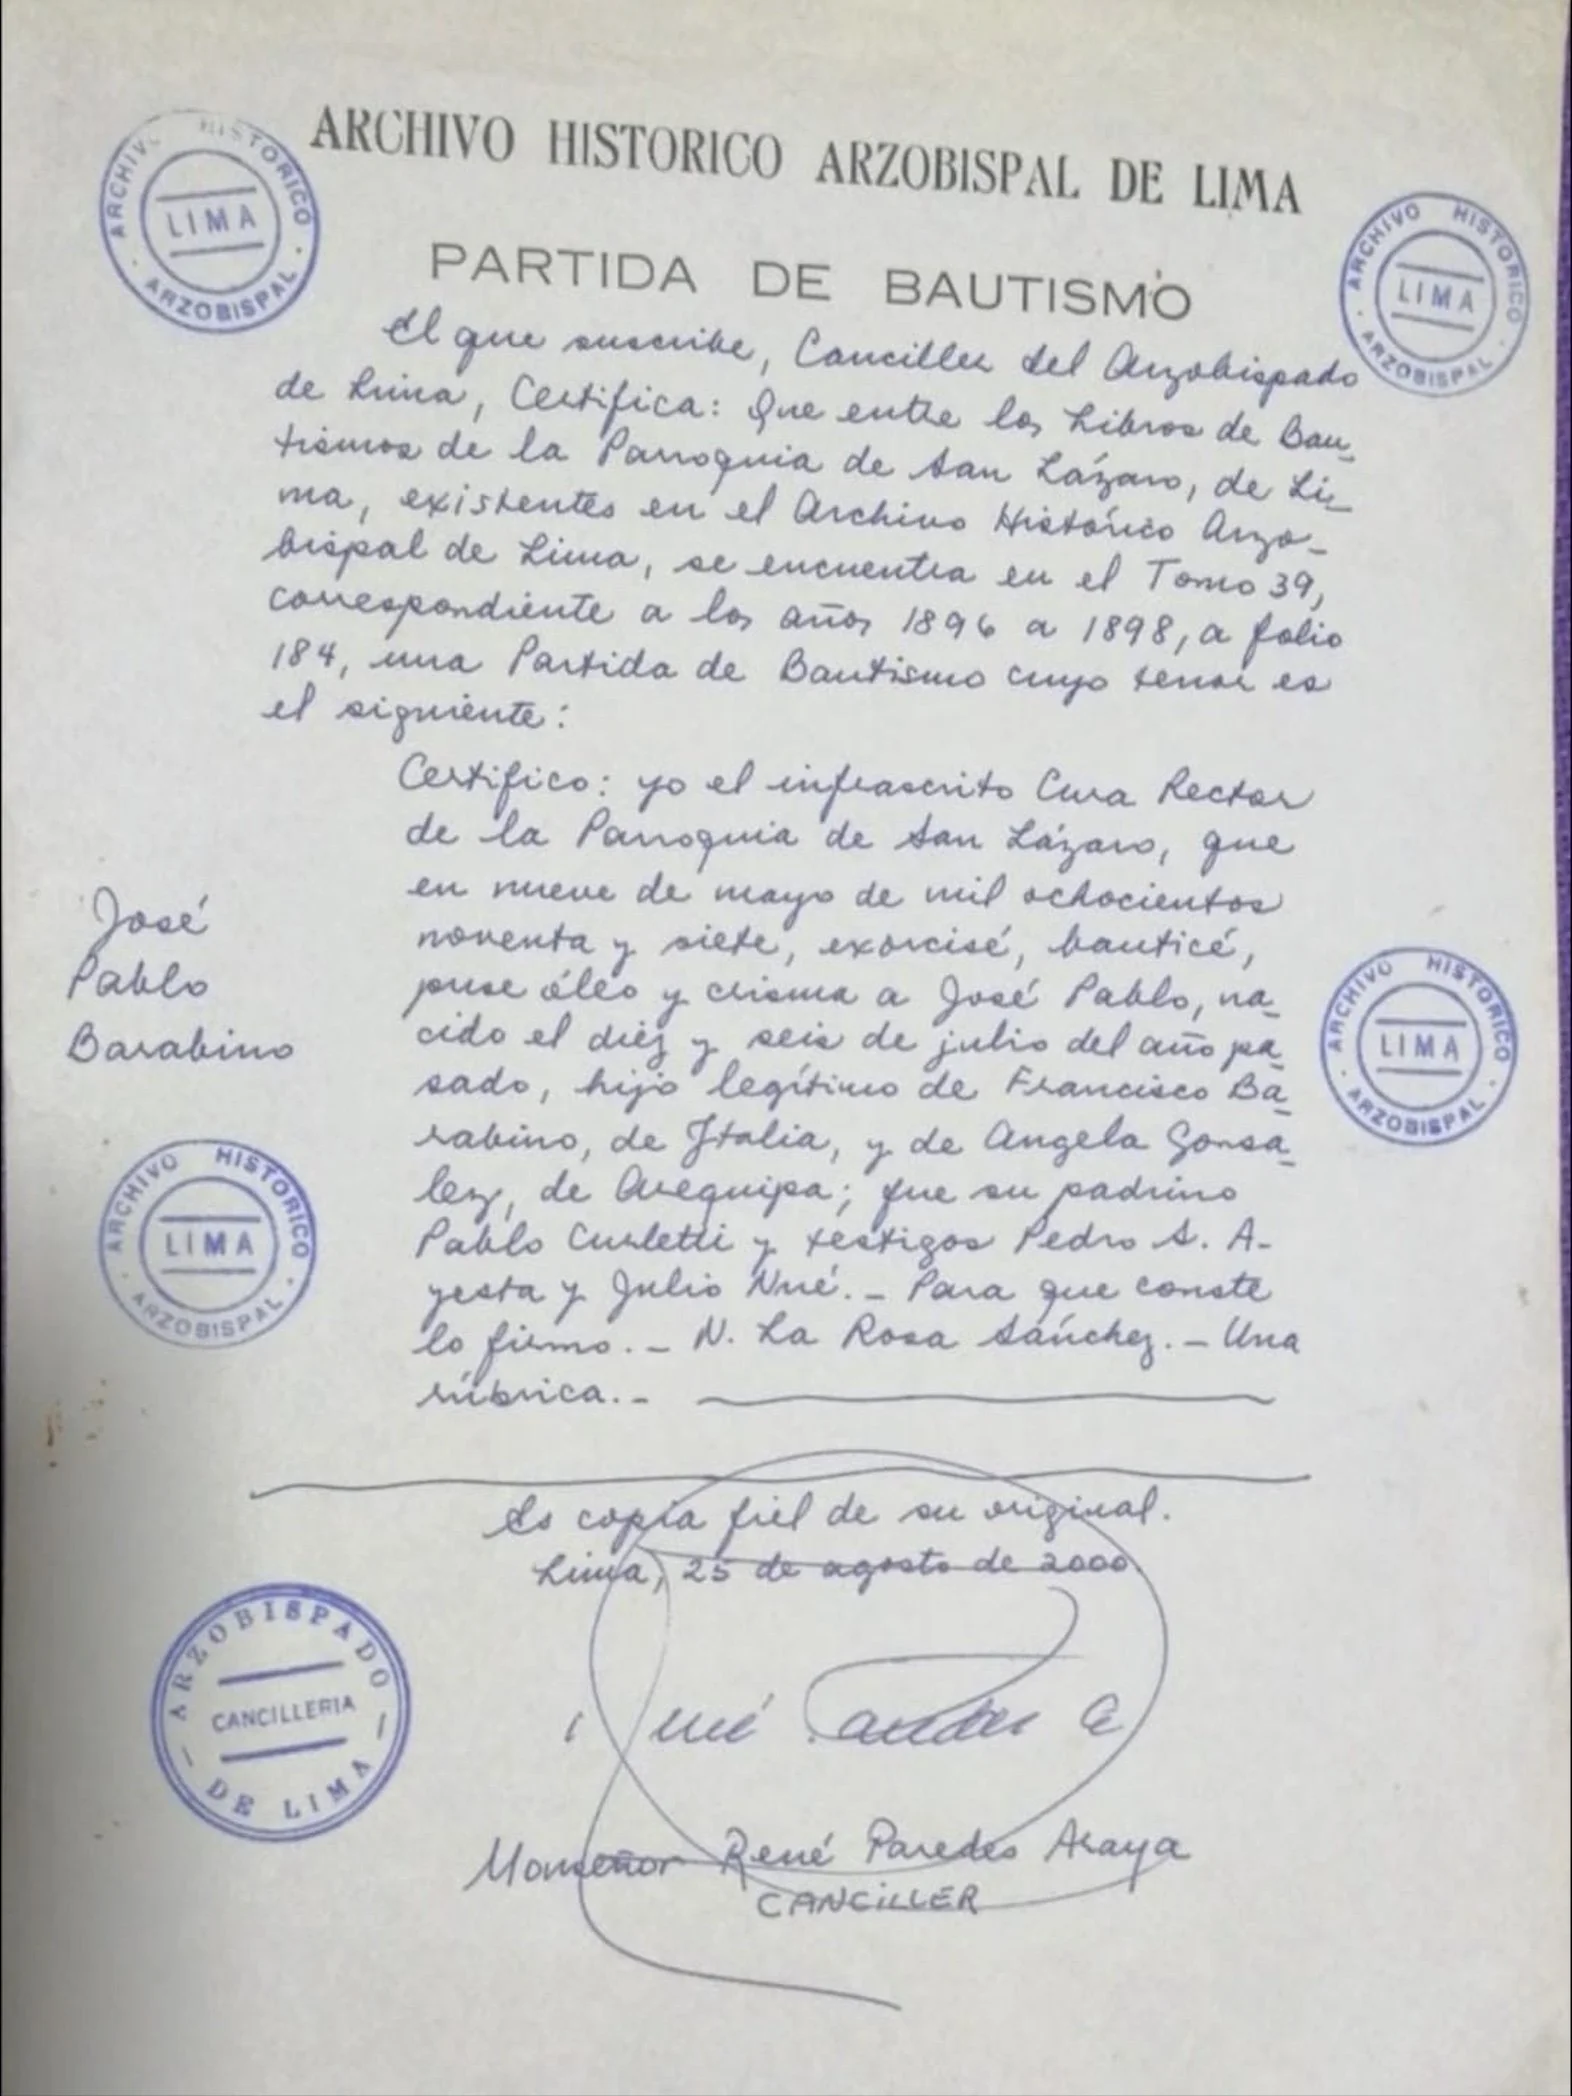 ARCHIVO HISTORICO ARZOBISPAL DE LIMA
ARCHIVO HISTORICO
LIMA
ARZOBISPAL
ARCHIVO HISTORICO
LIMA
ARZOBISPAL
PARTIDA DE BAUTISMO
El que suscribe, Canciller del Arzobispado
de Lima, Certifica: Que entre los Libros de Bau_
tismos de la Parroquia de San Lázaro, de Li_
ma, existentes en el Archivo Histórico Arzo_
bispal de Lima, se encuentra en el Tomo 39,
correspondiente a los años 1896 a 1898, a folio
184, una Partida de Bautismo cuyo tenor es
el siguiente:
Certifico: yo el infrascrito Cura Rector
de la Parroquia de San Lázaro, que
en nueve de mayo de mil ochocientos
noventa y siete, exorcisé, bauticé,
puse óleo y crisma a José Pablo, na_
cido el diez y seis de julio del año pa_
sado, hijo legítimo de Francisco Ba_
rabino, de Italia, y de Angela Gonsa_
lez, de Arequipa; fue su padrino
Pablo Curletti y testigos Pedro S. A-
yesta y Julio Nué. _ Para que conste
lo firmo. _ N. La Rosa Sánchez. _ Una
rúbrica. _
José
Pablo
Barabino
ARCHIVO HISTORICO
LIMA
ARZOBISPAL
ARCHIVO HISTORICO
LIMA
ARZOBISPAL
Es copia fiel de su original.
Lima, 25 de agosto de 2000
ARZOBISPADO
CANCILLERIA
DE LIMA
Monseñor René Paredes Araya
CANCILLER